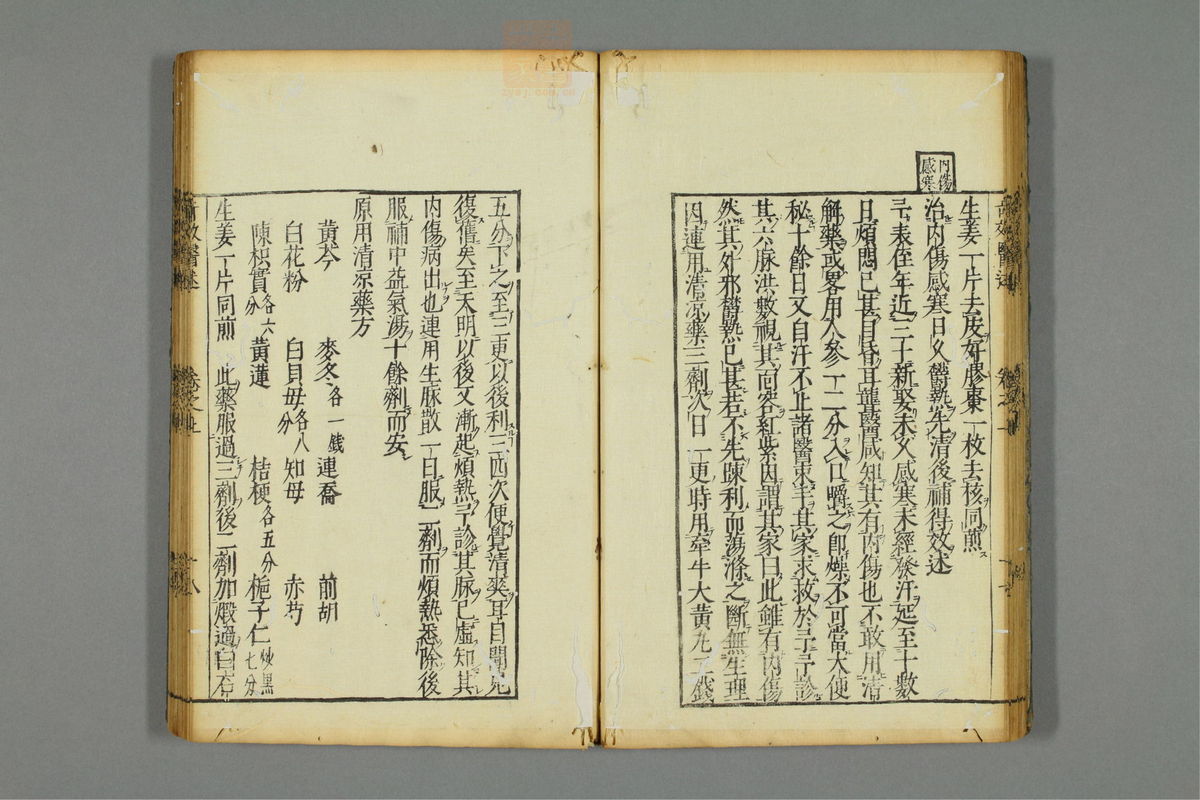 內傷
感寒
生姜一片去皮好膠棗一枚去核同煎
治內傷感寒日久欝熱先清後補得效述
予表侄年近三十新娶未久感寒未經發汗延至十數
日煩悶已甚目昏耳聾醫咸知其有內傷也不敢用清
解藥或畧用人參一二分入口嚼之卽燥不可當大便
秘十餘日又自汗不止諸醫束手其家求救於予予診
其六脉洪數視其面容紅紫因謂其家曰此雖有內傷
然其外邪欝熱已甚若不先踈利而蕩滌之斷無生理
因連用清凉藥三劑次日一更時用牽牛大黃丸二錢
五分下之至三更以後利三四次便覺清爽耳目聞見
復舊矣至天明以後又漸起煩熱予診其脉已虛知其
內傷病出也連用生脉散一日服二劑而煩熱悉除後
服補中益氣湯十餘劑而安
原用清凉藥方
黃芩 麥冬各一錢 連喬 前胡
白花粉 白貝母各八分 知母 赤芍
陳枳實各六分 黃蓮 桔梗各五分 梔子仁炒黑七分
生姜一片同煎 此藥服過三劑後二劑加煅過白石